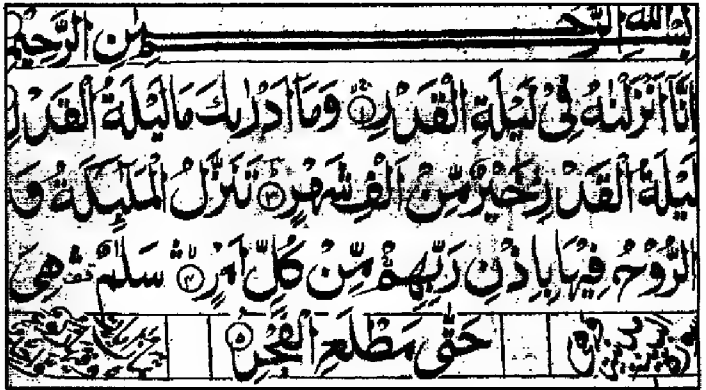 بِسْمِ اللهِ الرَّحْمٰنِ الرَّحِيْمِ
اِنَّاۤ اَنْزَلْنٰهُ فِیْ لَيْلَةِ الْقَدْرِ ۝١ وَمَاۤ اَدْرٰىكَ مَا لَيْلَةُ الْقَدْرِ
لَيْلَةُ الْقَدْرِ خَيْرٌ مِّنْ اَلْفِ شَهْرٍ ۝٣ تَنَزَّلُ الْمَلٰٓئِكَةُ وَ
الرُّوْحُ فِيْهَا بِاِذْنِ رَبِّهِمْ مِّنْ كُلِّ اَمْرٍ ۝٤ سَلٰمٌ هِیَ
حَتّٰى مَطْلَعِ الْفَجْرِ ۝٥